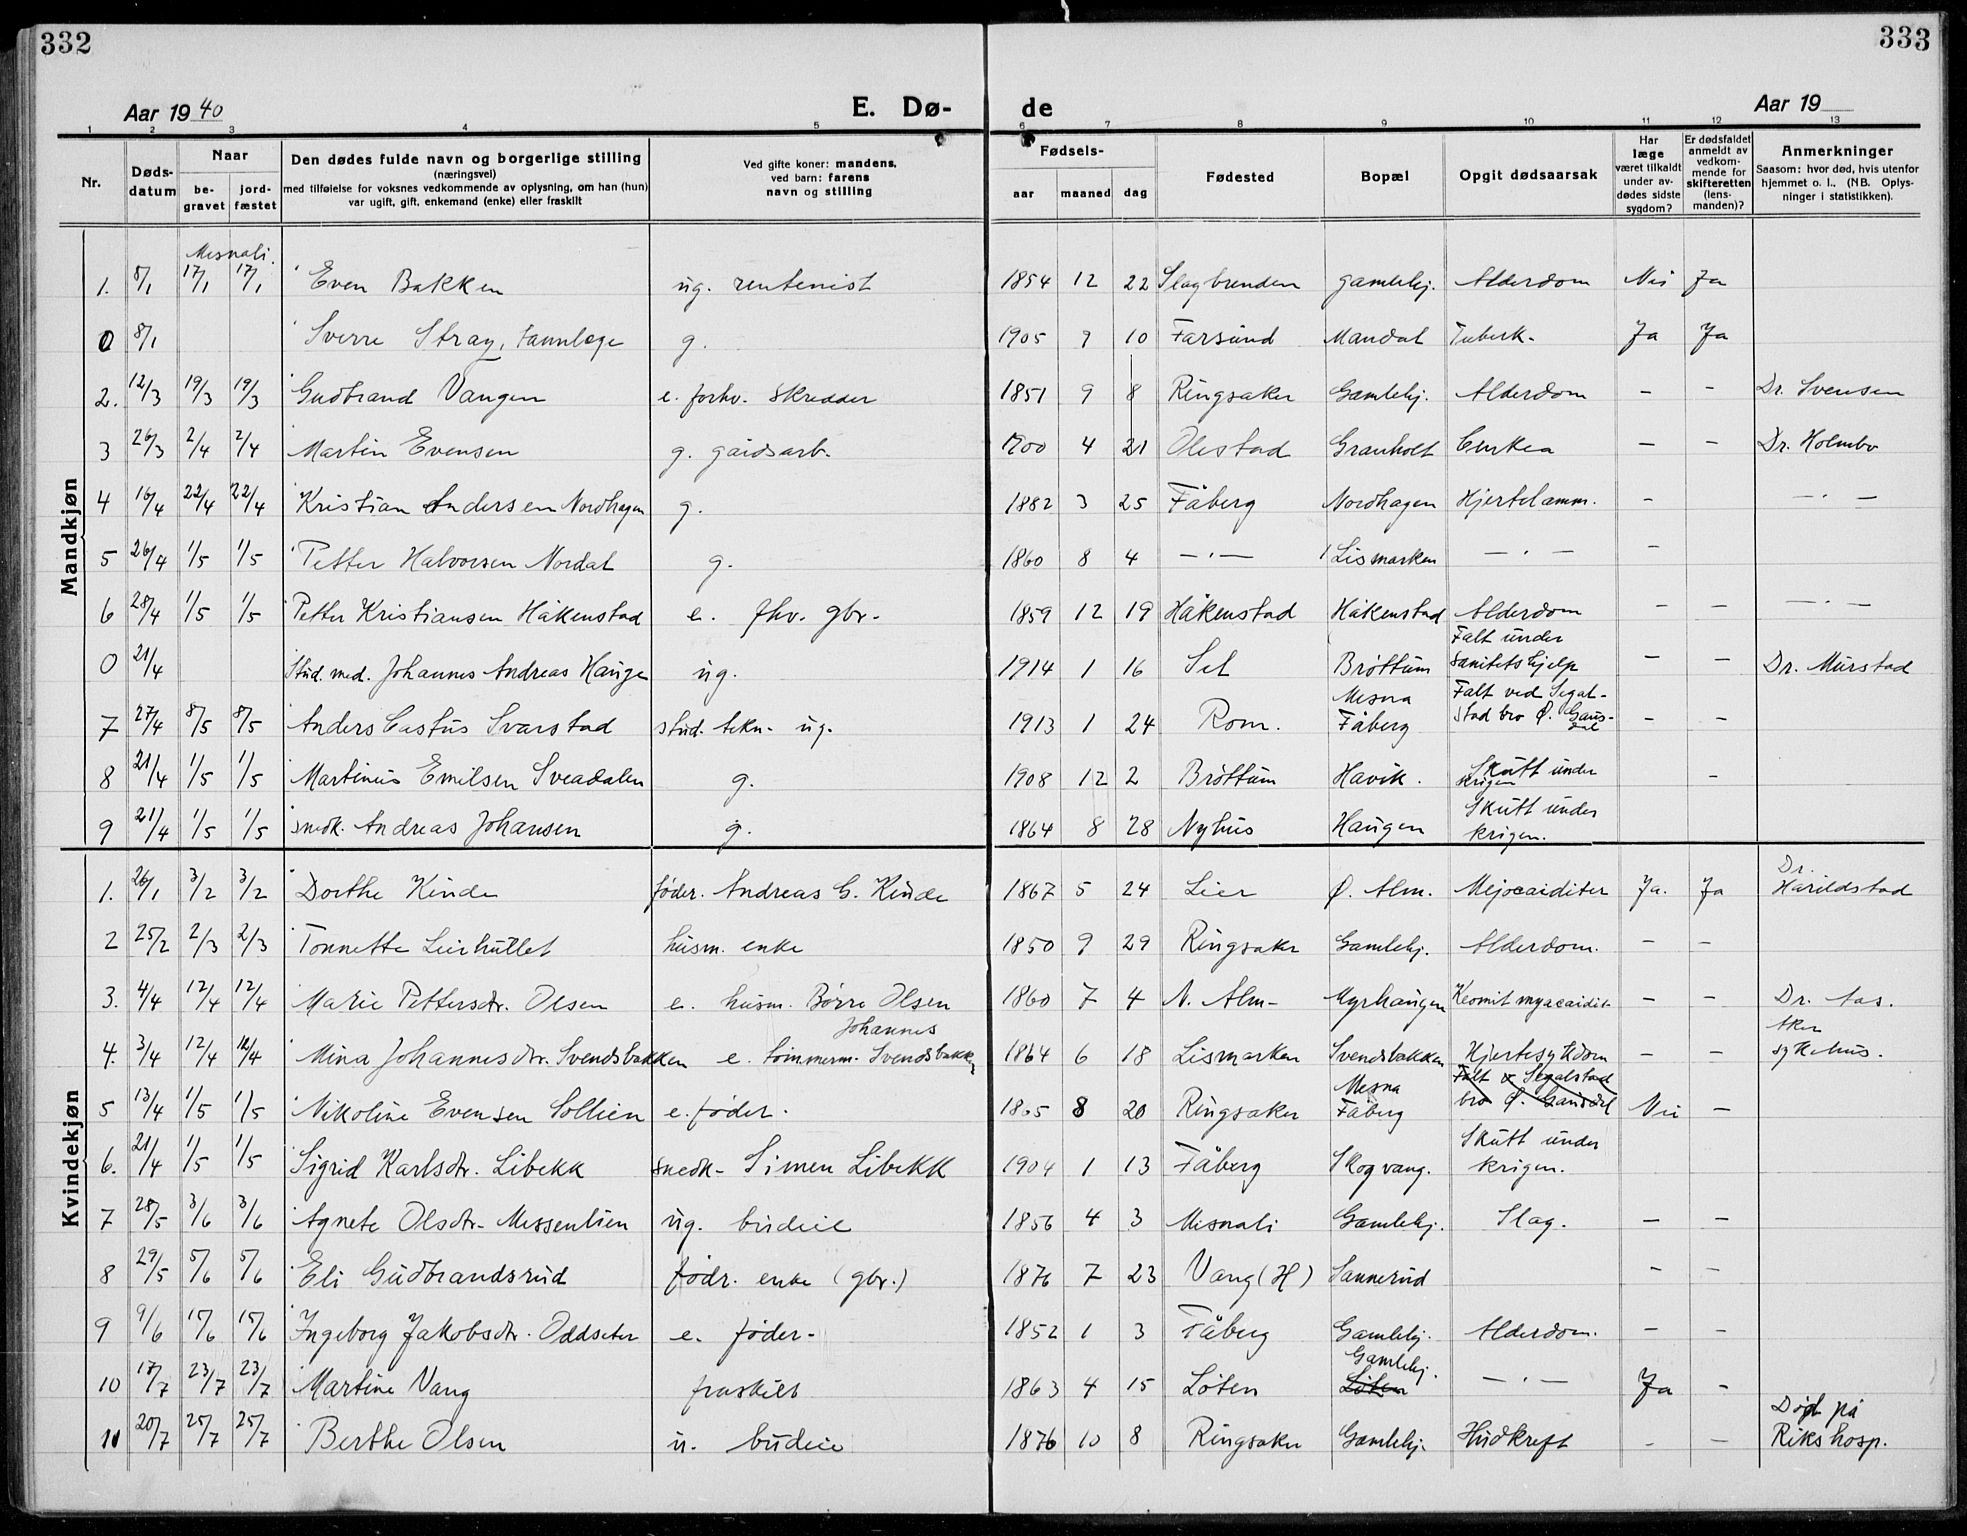 332
333
Aar 1940
E. Dø-
de
Aar 19
1 2 3 4 5 6 7 8 9 10 11 12 13
Nr.
Døds-
datum
Naar
be-
gravet
jord-
fæstet
Den dødes fulde navn og borgerlige stilling
(næringsvei)
med tilføielse for voksnes vedkommende av oplysning, om han (hun)
var ugift, gift, enkemand (enke) eller fraskilt
Ved gifte koner: mandens,
ved barn: farens
navn og stilling
Fødsels-
aar maaned dag
Fødested
Bopæl
Opgit dødsaarsak
Har
læge
været tilkaldt
under av-
dødes sidste
sygdom?
Er dødsfaldet
anmeldt av
vedkom-
mende for
skifteretten
(lens-
manden)?
Anmerkninger
Saasom: hvor død, hvis utenfor
hjemmet o. l., (NB. Oplys-
ninger i statistikken).
Mandkjøn
Mesnali.
1. 8/1 17/1 17/1 Even Bakken ug. rentenist 1854 12 22 Slagbrenden gamlehj. Alderdom Nei Ja
0 8/1 Sverre Stray, tannlege g. 1905 9 10 Farsund Mandal Tuberk. Ja Ja
2. 12/3 19/3 19/3 Gudbrand Vangen e. forhv. skredder 1851 9 8 Ringsaker Gamlehj. Alderdom — — Dr. Svensen
3 26/3 2/4 2/4 Martin Evensen g. gårdsarb. 1900 4 21 Olestad Granholt — — Dr. Holmbo
4 16/4 22/4 22/4 Kristian Andersen Nordhagen g. 1882 3 25 Fåberg Nordhagen Hjertelamm. — — . —
5 26/4 1/5 1/5 Petter Halvorsen Nordal g. 1860 8 4 — . — Lismarken — . — —
6 28/4 1/5 1/5 Petter Kristiansen Håkenstad e. fhv. gbr. 1859 12 19 Håkenstad Håkenstad Alderdom — — — . —
Falt under
0 21/4 Stud. med. Johannes Andreas Hauge ug. 1914 1 16 Sel Brøttum sanitetshjelp — — Dr. Murstad
Mesna Falt ved Segal-
7 27/4 8/5 8/5 Anders Castus Svarstad stud. tekn. ug. 1913 1 24 Rom. Fåberg stad bro Ø. Gaus-
dal — —
8 21/4 1/5 1/5 Martinus Emilsen Sveadalen g. 1908 12 2 Brøttum Havik. Skutt under
krigen —
9 21/4 1/5 1/5 snedk. Andreas Johansen g. 1864 8 28 Nyhus Haugen Skutt under
krigen.
Kvindekjøn
Dr.
1. 26/1 3/2 3/2 Dorthe Kinde føder. Andreas G. Kinde 1867 5 24 Lier Ø. Alm. Mejocaiditer Ja. Ja Harildstad
2 25/2 2/3 2/3 Tonnette Leirhullet husm. enke 1850 9 29 Ringsaker Gamlehj. Alderdom. — —
3. 4/4 12/4 12/4 Marie Pettersdtr. Olsen e. husm. Børre Olsen 1860 7 4 N. Alm- Myrhaugen Kronit myacaidit. — — Dr. Aas.
Johannes Aker
4. 3/4 12/4 12/4 Mina Johannesdtr. Svendsbakken e. tømmerm. Svendsbakken 1864 6 18 Lismarken Svendsbakken Hjertesykdom — — sykehus.
Mesna Falt v Segalstad
5 13/4 1/5 1/5 Nikoline Evensen Sollien e. føder. 1865 8 20 Ringsaker Fåberg bro Ø. Gausdal Nei —
6. 21/4 1/5 1/5 Sigrid Karlsdtr. Libekk snedk- Simen Libekk 1904 1 13 Fåberg Skogvang. Skutt under
krigen.
7 28/5 3/6 3/6 Agnete Olsdtr. Messenlien ug. budeie 1856 4 3 Mesnali Gamlehj. Slag. — —
8 29/5 5/6 5/6 Eli Gudbrandsrud fødr. enke (gbr.) 1876 7 23 Vang (H) Sannerud — —
9 9/6 15/6 15/6 Ingeborg Jakobsdtr. Oddseter e. føder- 1852 1 3 Fåberg Gamlehj. Alderdom. — —
Gamlehj.
10 17/7 23/7 23/7 Martine Vang fraskilt 1863 4 15 Løten Løten — . — Ja —
Død på
11 20/7 25/7 25/7 Berthe Olsen u. budeie 1876 10 8 Ringsaker Gamlehj. Hudkreft — — Rikshosp.